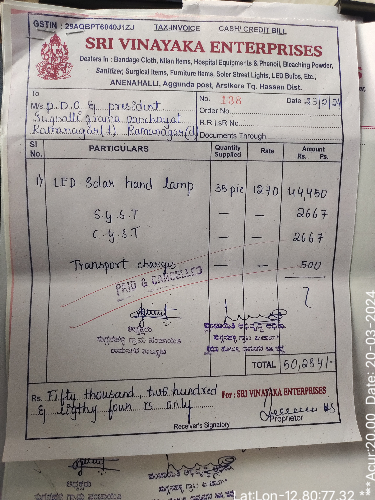 GSTIN : 29AQBPT6040J1ZJ TAX-INVOICE CASH/ CREDIT BILL
SRI VINAYAKA ENTERPRISES
Dealers in : Bandage Cloth, Mian Items, Hospital Equipments & Phenoil, Bleaching Powder,
Sanitizer, Surgical Items, Furniture Items, Solar Street Lights, LED Bulbs, Etc.,
ANENAHALLI, Aggunda post, Arsikere Tq. Hassan Dist.
To
M/s P.D.O & president
grama panchayat
Ramanagar(d)
No. 138 Date
Order No.
R.R./S.R No.
Documents Through
Sl No. PARTICULARS Quantity Supplied Rate Amount Rs. Ps.
1) LED Solar hand lamp 35 pic 1270 44,450
S.G.S.T — — 2667
C.G.S.T — — 2667
Transport charges — 500
PAID & CANCELLED
TOTAL 50,284/-
Rs. Fifty thousand two hundred
& eighty four rs only
For : SRI VINAYAKA ENTERPRISES
Proprietor
Receiver's Signatory
Lat:Lon-12.80:77.32
***Acur:20.00 Date: 20-03-2024